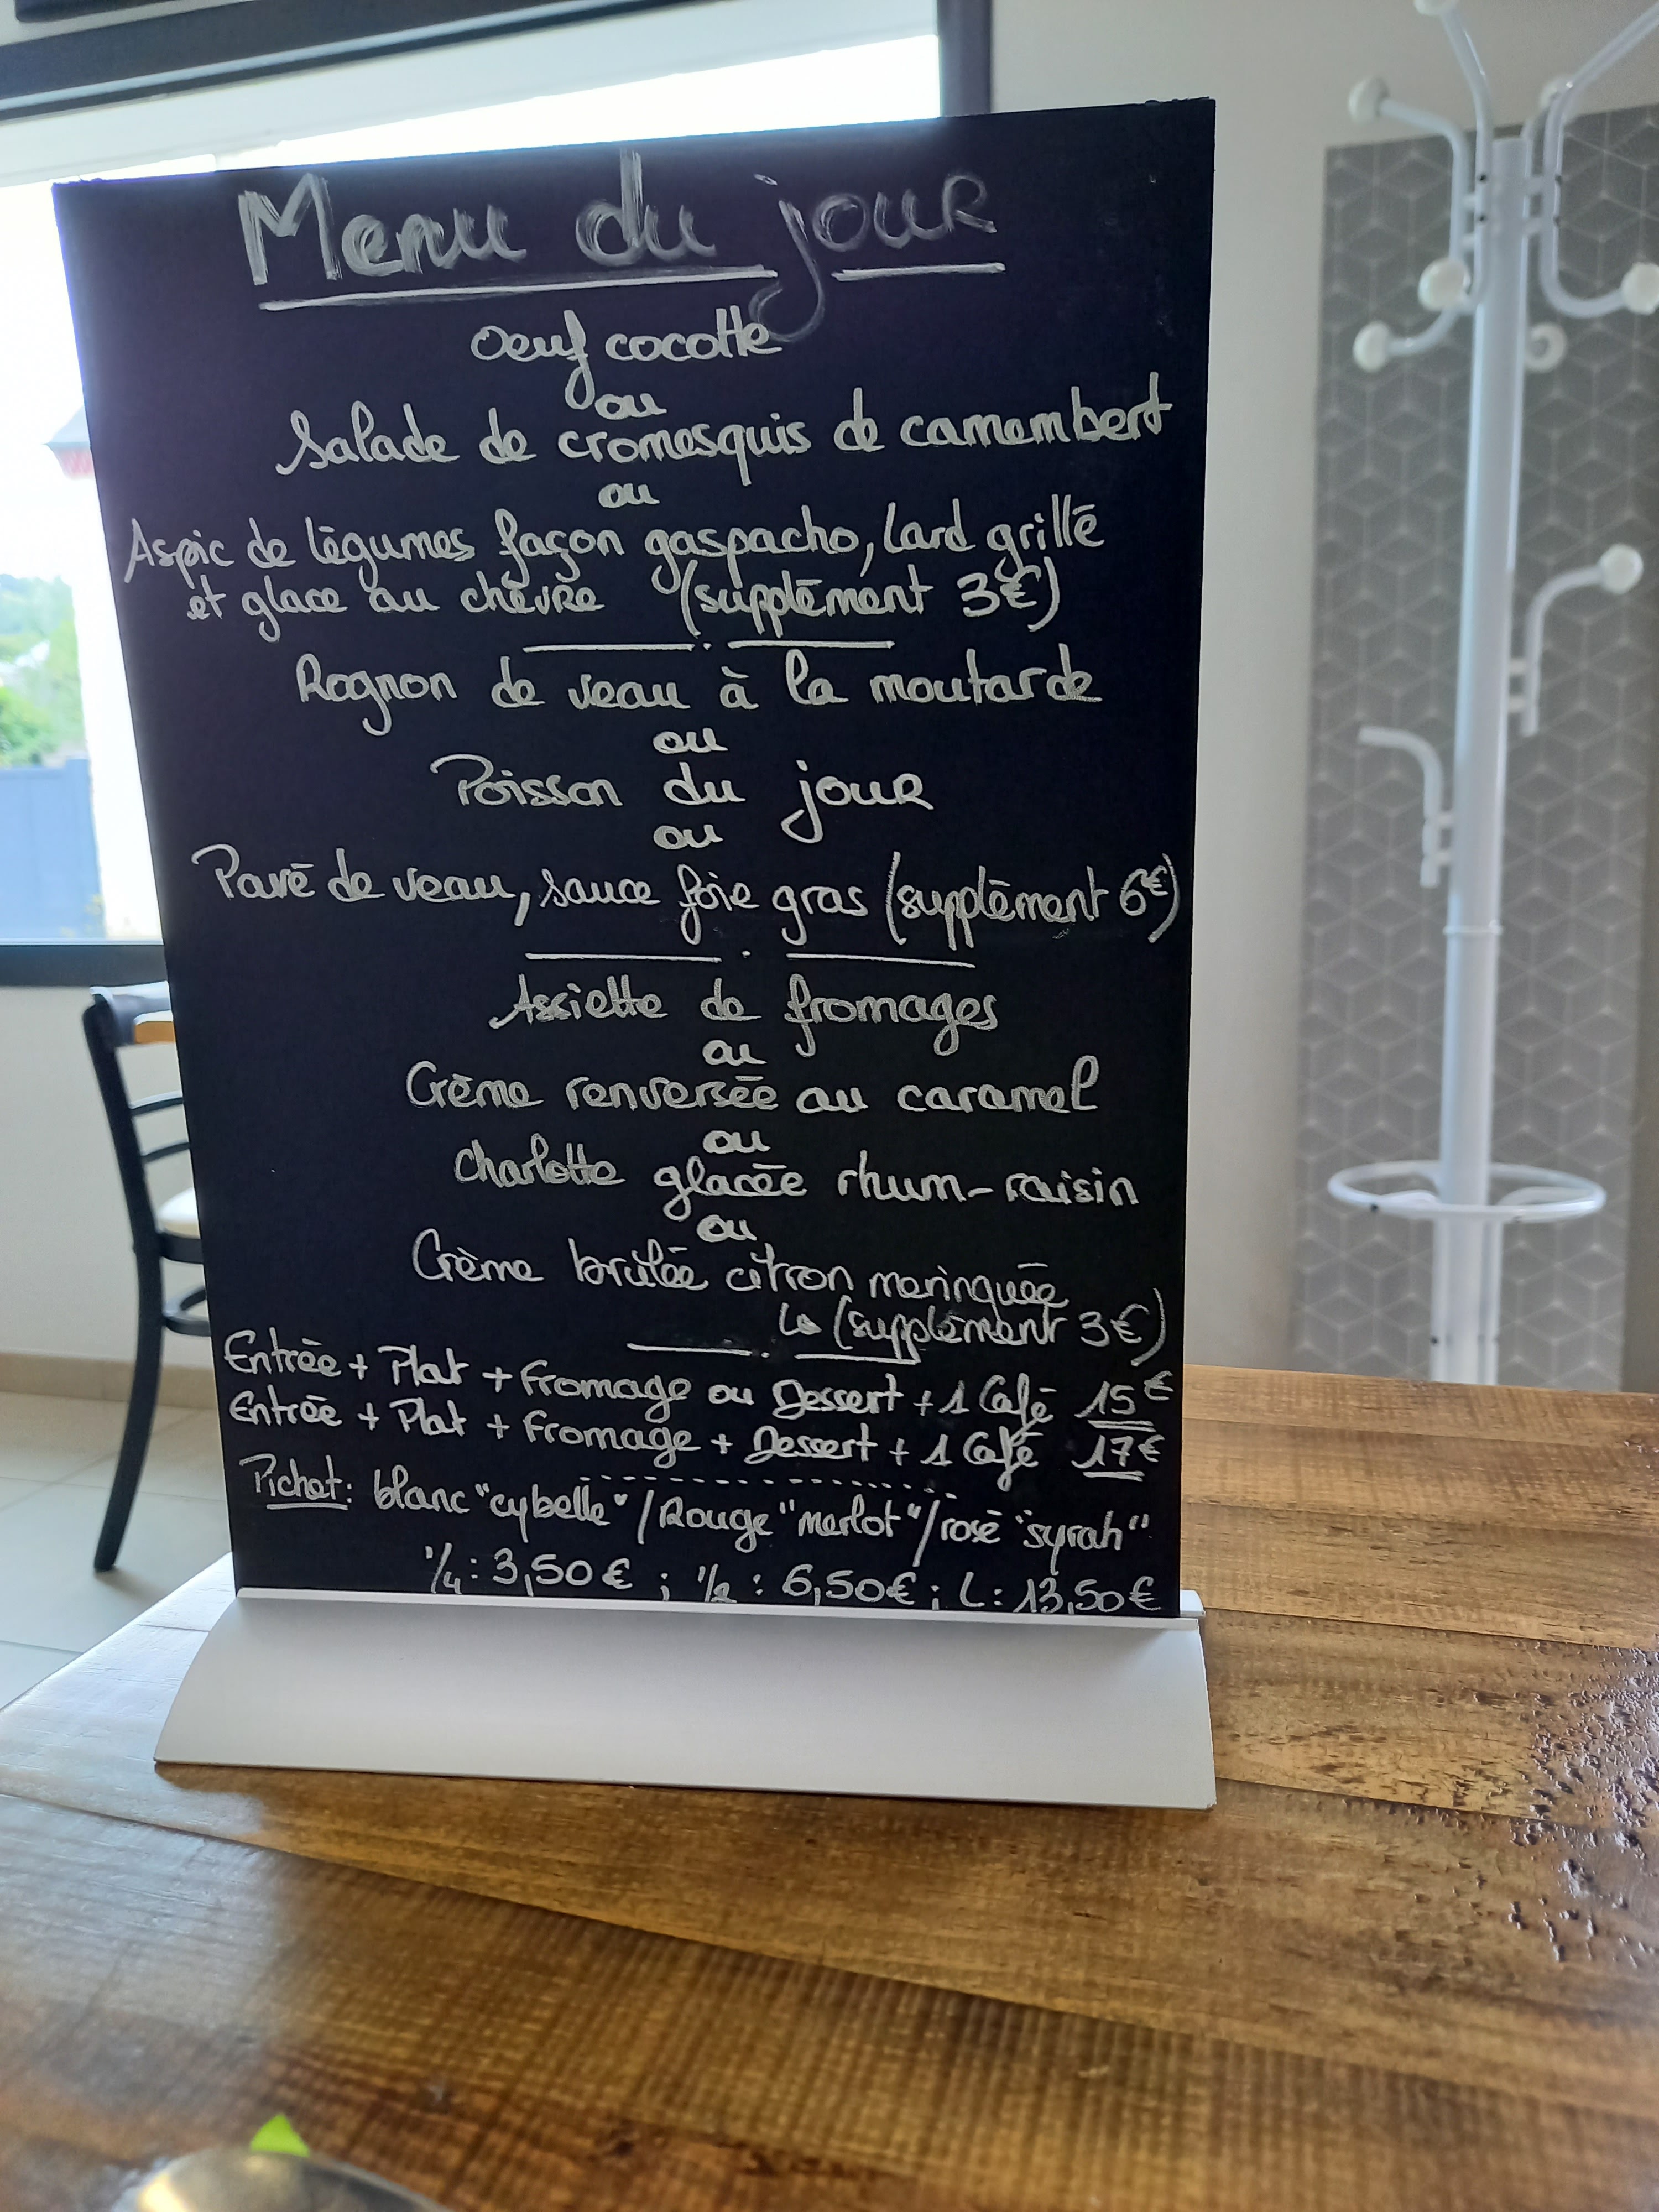 Menu du jour
Oeuf cocotte
ou
Salade de cromesquis de camembert
ou
Aspic de légumes façon gaspacho, lard grillé
et glace au chèvre (supplément 3€)
Rognon de veau à la moutarde
ou
Poisson du jour
ou
Pavé de veau, sauce foie gras (supplément 6€)
Assiette de fromages
ou
Crème renversée au caramel
ou
Charlotte glacée rhum-raisin
ou
Crème brûlée citron meringuée
↳ (supplément 3€)
Entrée + Plat + Fromage ou Dessert + 1 Café 15€
Entrée + Plat + Fromage + Dessert + 1 Café 17€
Pichet: blanc "cybelle" / Rouge "merlot" / rosé "syrah"
1/4 : 3,50€ ; 1/2 : 6,50€ ; L : 13,50€